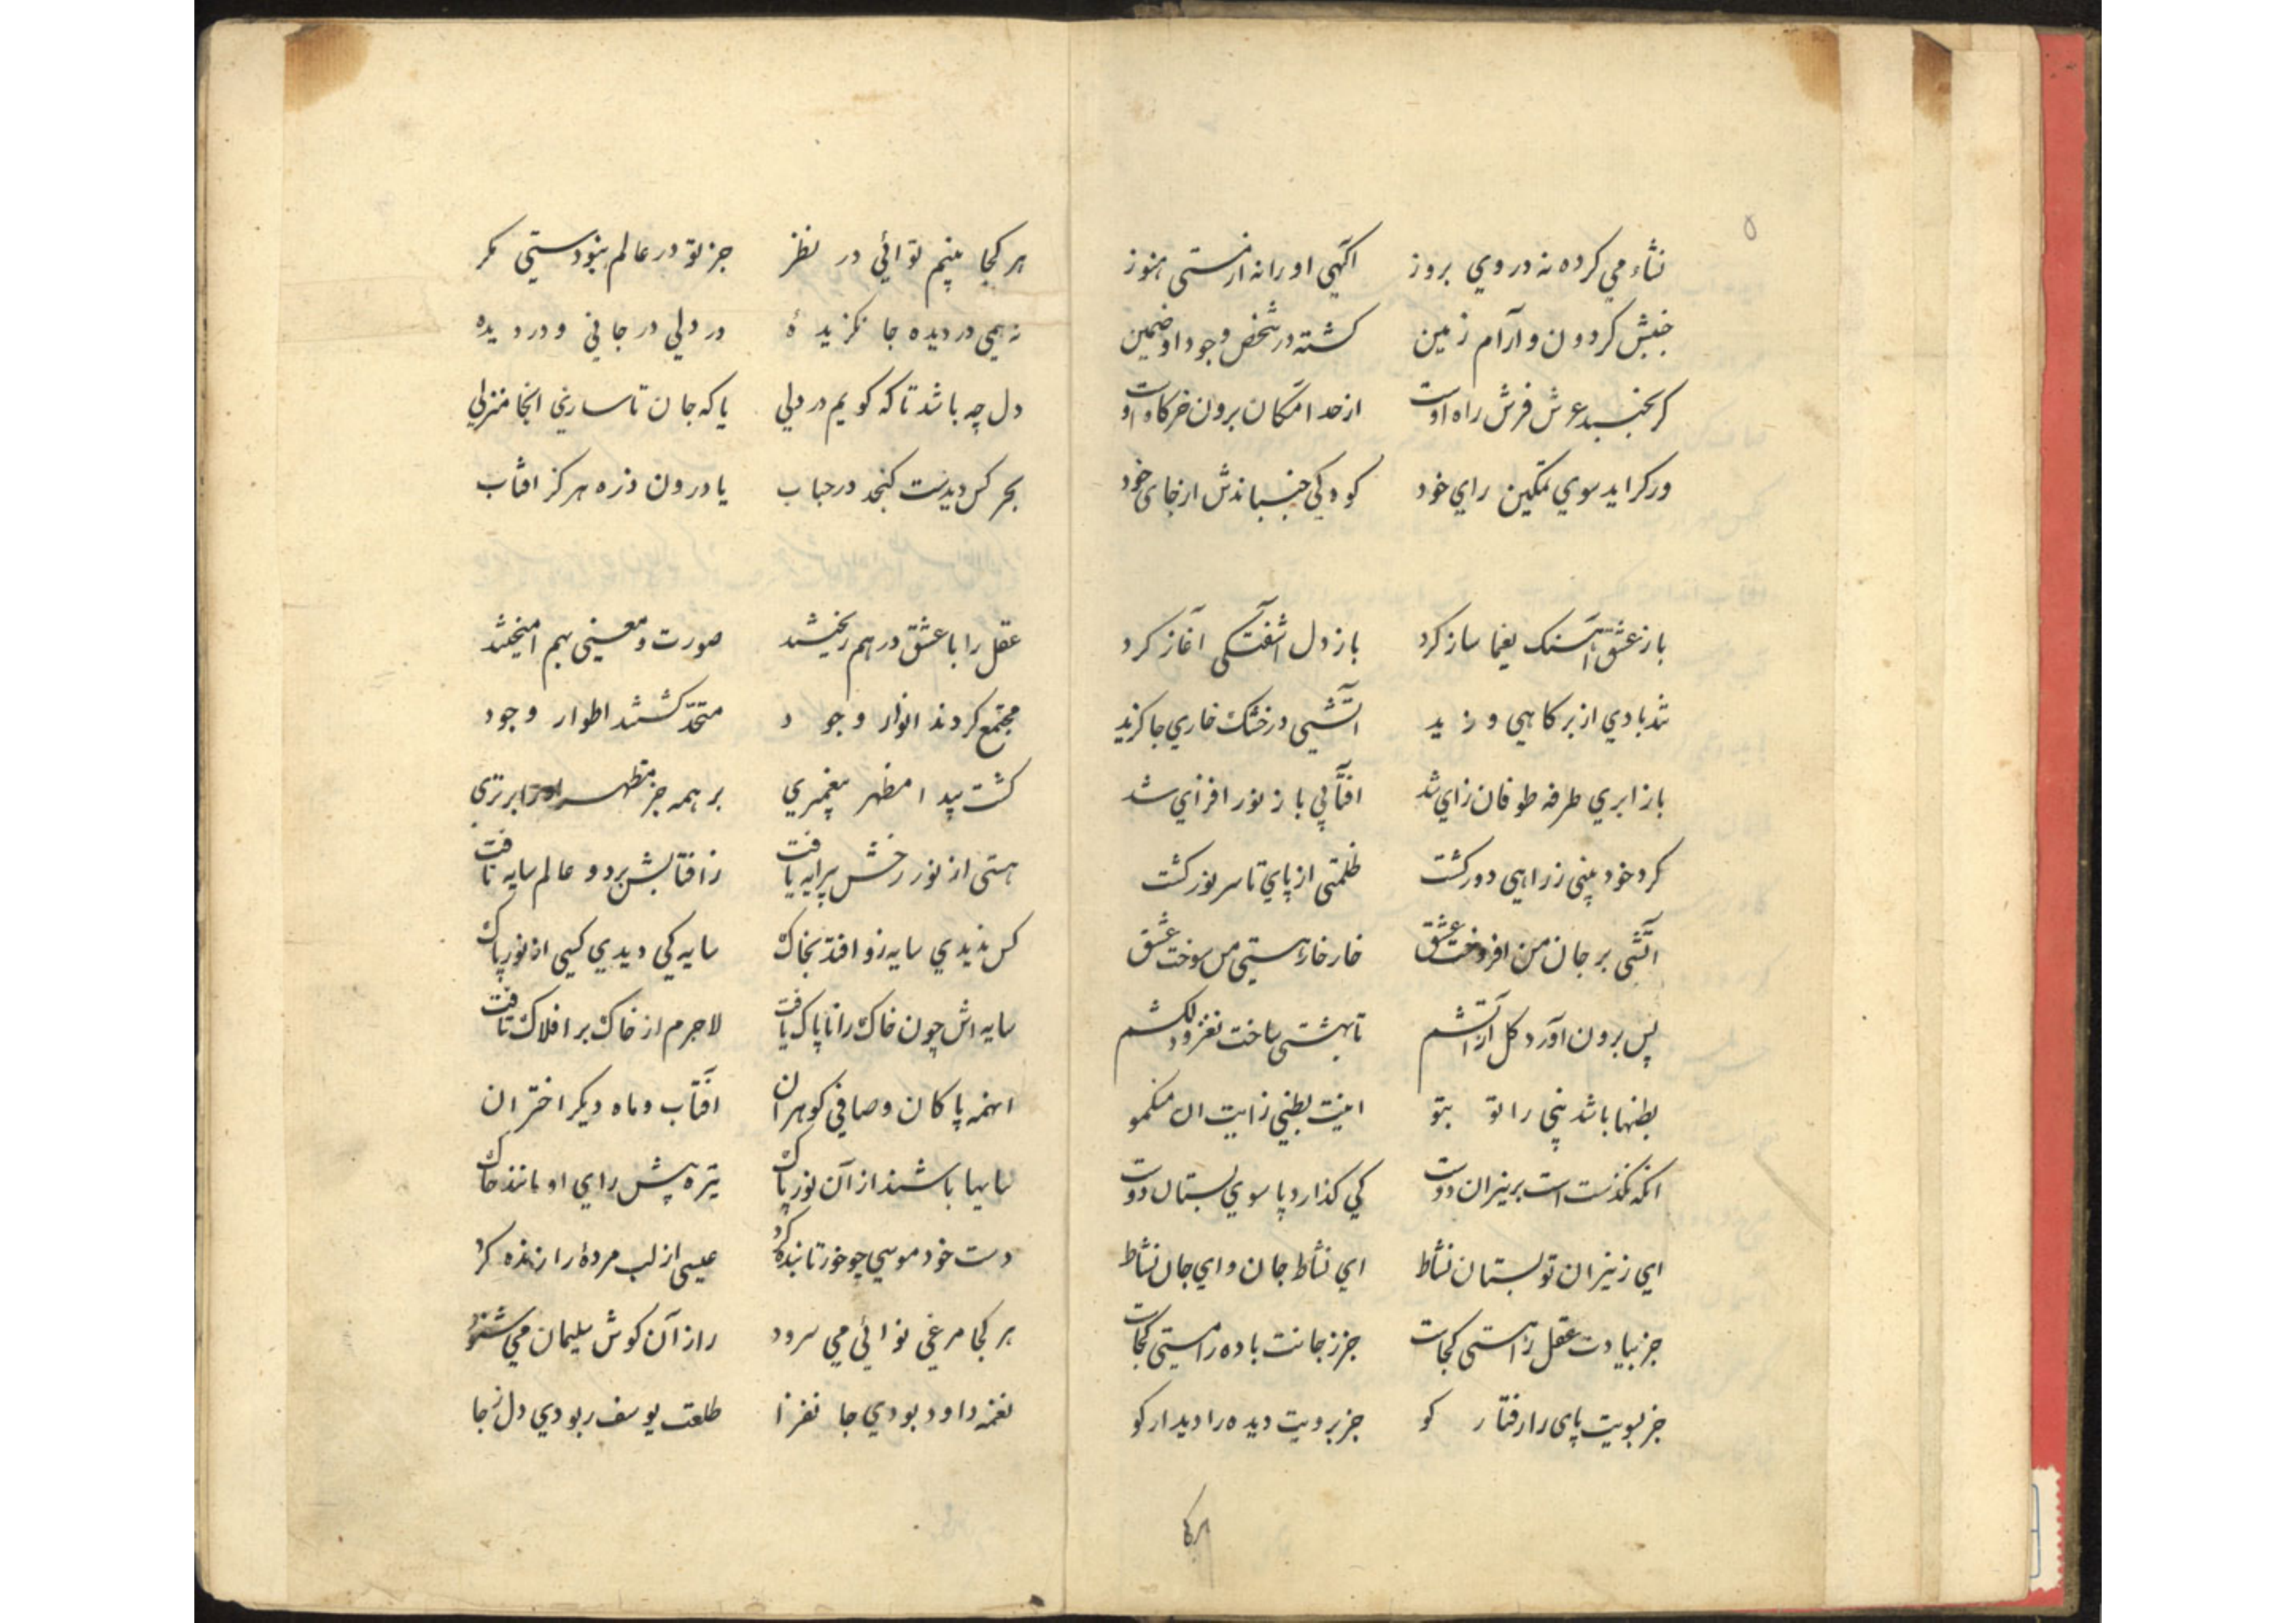 ۵
نشاء می کرده نه در وي بروز اگهي او را نه از مستی هنوز
جنبش کردون و آرام زمین کشته در شخص وجود او ضمین
کر بجنبد عرش فرش راه اوست از حد امکان برون خرکاه اوست
ور کراید سوي تمکین راي خود کودکي جنباندش از جای خود
باز عشق آهنک یغما ساز کرد باز دل آشفتکی آغاز کرد
تند بادي از بر کاهي وزید آتشی در خشک خاري جا کزید
باز ابري طرفه طوفان زاي شد افتابي باز نور افزاي شد
کرد خود بینی ز راهی دور کشت ظلمتی از پاي تا سر نور کشت
آتشی بر جان من افروخت عشق خار خار هستی من سوخت عشق
پس برون آورد کل از آتشم تا بهشتی ساخت نغز و دلکشم
بطنها باشد نبی را تو بتو اینت بطنی زایت ان منکمو
انکه نکذشت است بر نیران دوست کي کذارد پا سوي بستان دوست
اي ز نیران تو بستان نشاط اي نشاط جان و اي جان نشاط
جز بیادت عقل را هستی کجاست جز ز جانت باده را مستی کجاست
جز بویت پای را رفتار کو جز برویت دیده را دیدار کو
هر کجا
هر کجا بینم توائي در نظر جز تو در عالم نبود هستی مکر
نه همی در دیده جا نکزیدهٔ در دلي در جاني و در دیده
دل چه باشد تا که کویم در دلي یا که جان تا سازي انجا منزلي
بحر کس دیدست کنجد در حباب یا درون ذره هرکز افتاب
عقل را با عشق در هم ریختند صورت و معنی بهم امیختند
مجتمع کردند انوار وجود متحد کشتند اطوار وجود
کشت پیدا مظهر پیغمبري بر همه جز مظهر برتري
هستی از نور رخش پیرایه یافت ز افتابش بر دو عالم سایه تافت
کس ندیدي سایه زو افتد بخاک سایه کي دیدي کسی از نور پاک
سایه اش چون خاک را ناپاک یافت لاجرم از خاک بر افلاک تافت
انهمه پاکان و صافي کوهران افتاب و ماه دیکر اختران
سایها باشند از آن نور پاک تیره پیش راي او مانند خاک
دست خود موسي چو خور تابنده کرد عیسی از لب مردهٔ را زنده کرد
هر کجا مرغي نوائي مي سرود راز آن کوش سلیمان مي شنود
نغمه داود بودي جانفزا طلعت یوسف ربودي دل ز جا